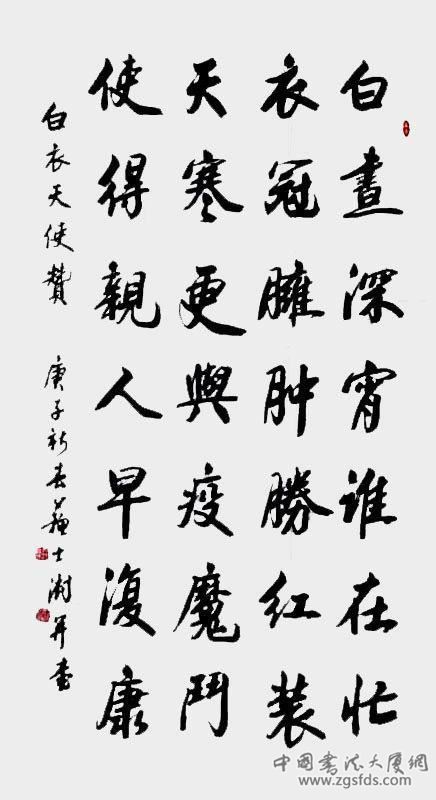 白晝深宵谁在忙
衣冠臃肿勝红装
天寒更與疫魔鬥
使得親人早復康
白衣天使贊 庚子新春蘇士澍并書
中國書法大厦網
www.zgsfds.com